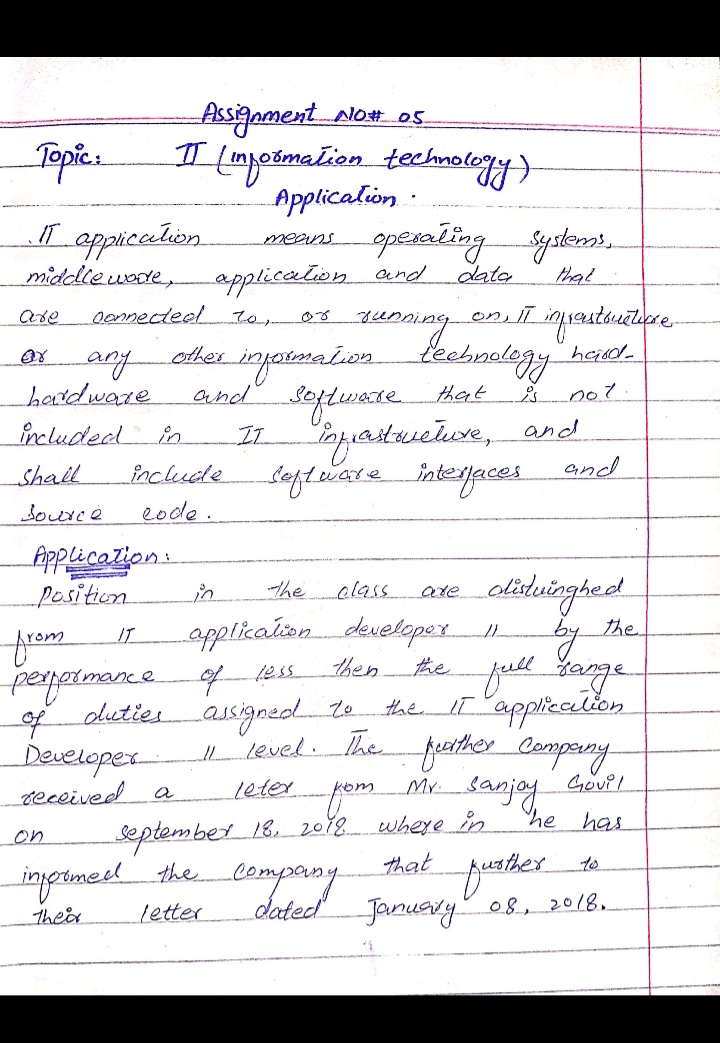 Assignment NO# 05
Topic: IT (information technology)
Application.
IT application means operating systems,
middleware, application and data that
are connected to, or running on, IT infrastructure
or any other information technology hard-
hardware and software that is not
included in IT infrastructure, and
shall include software interfaces and
source code.
Application:
Position in the class are distuinghed
from IT application developer II by the
performance of less then the full range
of duties assigned to the IT application
Developer II level. The further Company
received a leter from Mr. Sanjay Govil
on September 18, 2018 where in he has
informed the Company that further to
their letter dated January 08, 2018.